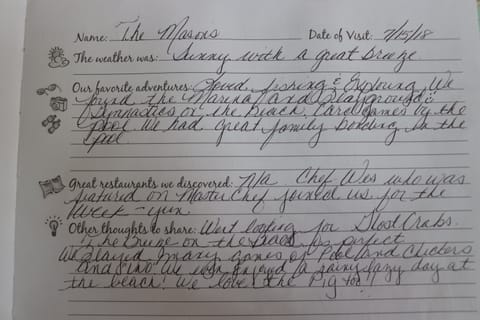 Name: The Masons Date of Visit: 7/15/18
The weather was: Sunny with a great breeze
Our favorite adventures: fishing & Exploring. We
found the Marina and Playground &
Gymnastics on the Beach. Card games by the
pool. We had great family bonding in the
Great restaurants we discovered: N/A Chef Wes who was
featured on MasterChef joined us for the
week - yum
Other thoughts to share: Went looking for Ghost Crabs.
The Breeze on the is perfect
We played many games of Pool and Checkers
and We even enjoyed a rainy lazy day at
the beach! We love the Pig too!!